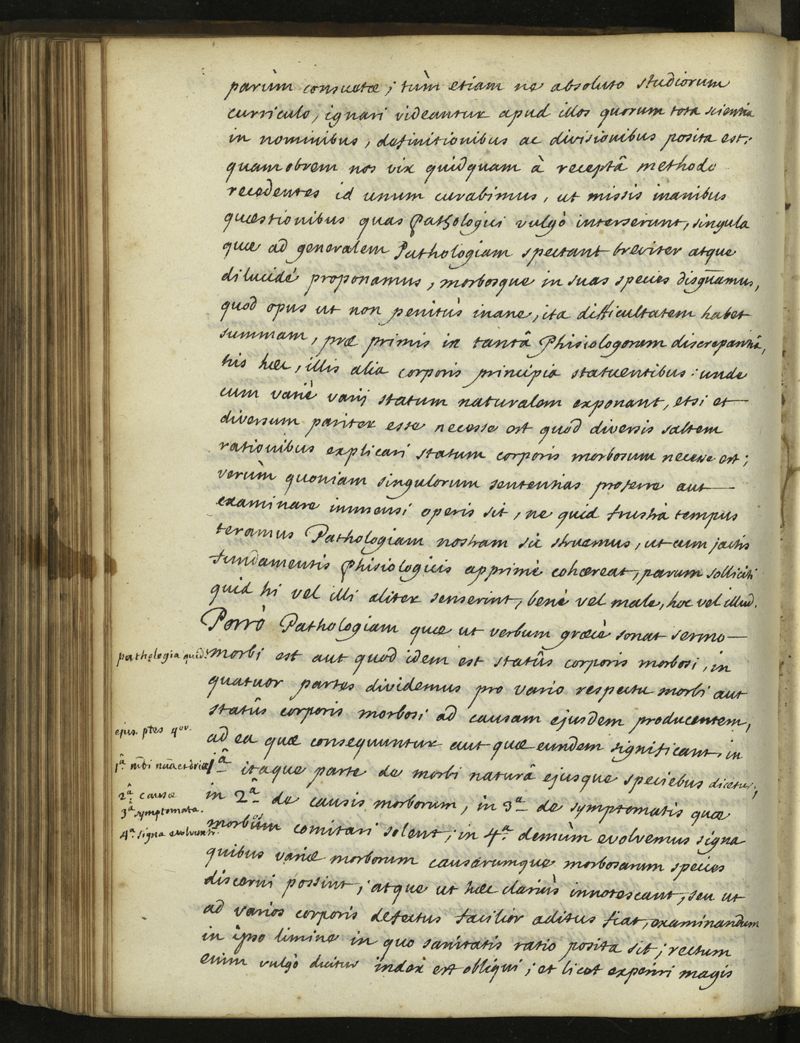 parùm consuetæ ; tùm etiam ne absoluto studiorum
curriculo, ignari videantur apud illos quorum tota scientia
in nominibus, definitionibus ac divisionibus posita est :
quamobrem nos vix quidquam à receptâ methodo
recedentes id unum curabimus, ut missis inanibus
quæstionibus quas Pathologici vulgò interserunt, singula
quæ ad generalem Pathologiam spectant breviter atque
dilucidè proponamus, morbosque in suas species distīguamus,
quod opus ut non penitùs inane, ita difficultatem habet
summam, præ primis in tantâ Phisiologorum discrepantiâ,
his hæc, illis alia corporis principia statuentibus : unde
cum variè varij statum naturalem exponant, etsi et
diversum pariter esse necesse est quod diversis saltem
rationibus explicari statum corporis morbosum necesse est ;
verùm quoniam singulorum sententias proferre aut
examinare immensi operis sit, ne quid frustrà tempus
teramus Pathologiam nostram sic struemus, ut cum jactis
fundamentis Phisiologicis apprimè cohæreat, parum solliciti
quid hi vel illi aliter senserint, benè vel male, hoc vel illud.
Porrò Pathologiam quæ ut verbum græcè sonat sermo
pathologia quid? morbi est aut quod idem est statûs corporis morbosi, in
quatuor partes dividemus pro vario respectu morbi aut
statûs corporis morbosi ad causam ejusdem producentem,
ejus ptes 4or. ad ea quæ consequuntur aut quæ eundem significant, in
1ª. 1â itaque parte de morbi naturâ ejusque speciebus dicetur,
2ª causæ in 2â de causis morborum, in 3ª de symptomatis quæ
3ª symptomata. morbum comitari solent ; in 4ª demùm evolvemus signa
4ª signa evolvuntr. quibus variæ morborum causarumque morbosarum species
discerni possint ; atque ut hæc clariùs innotescant, seu ut
ad varios corporis defectus facilior aditus fiat, examinandum
in ipso limine in quo sanitatis ratio posita sit ; rectum
enim vulgò dicitur index est obliqui ; et licet experiri magis